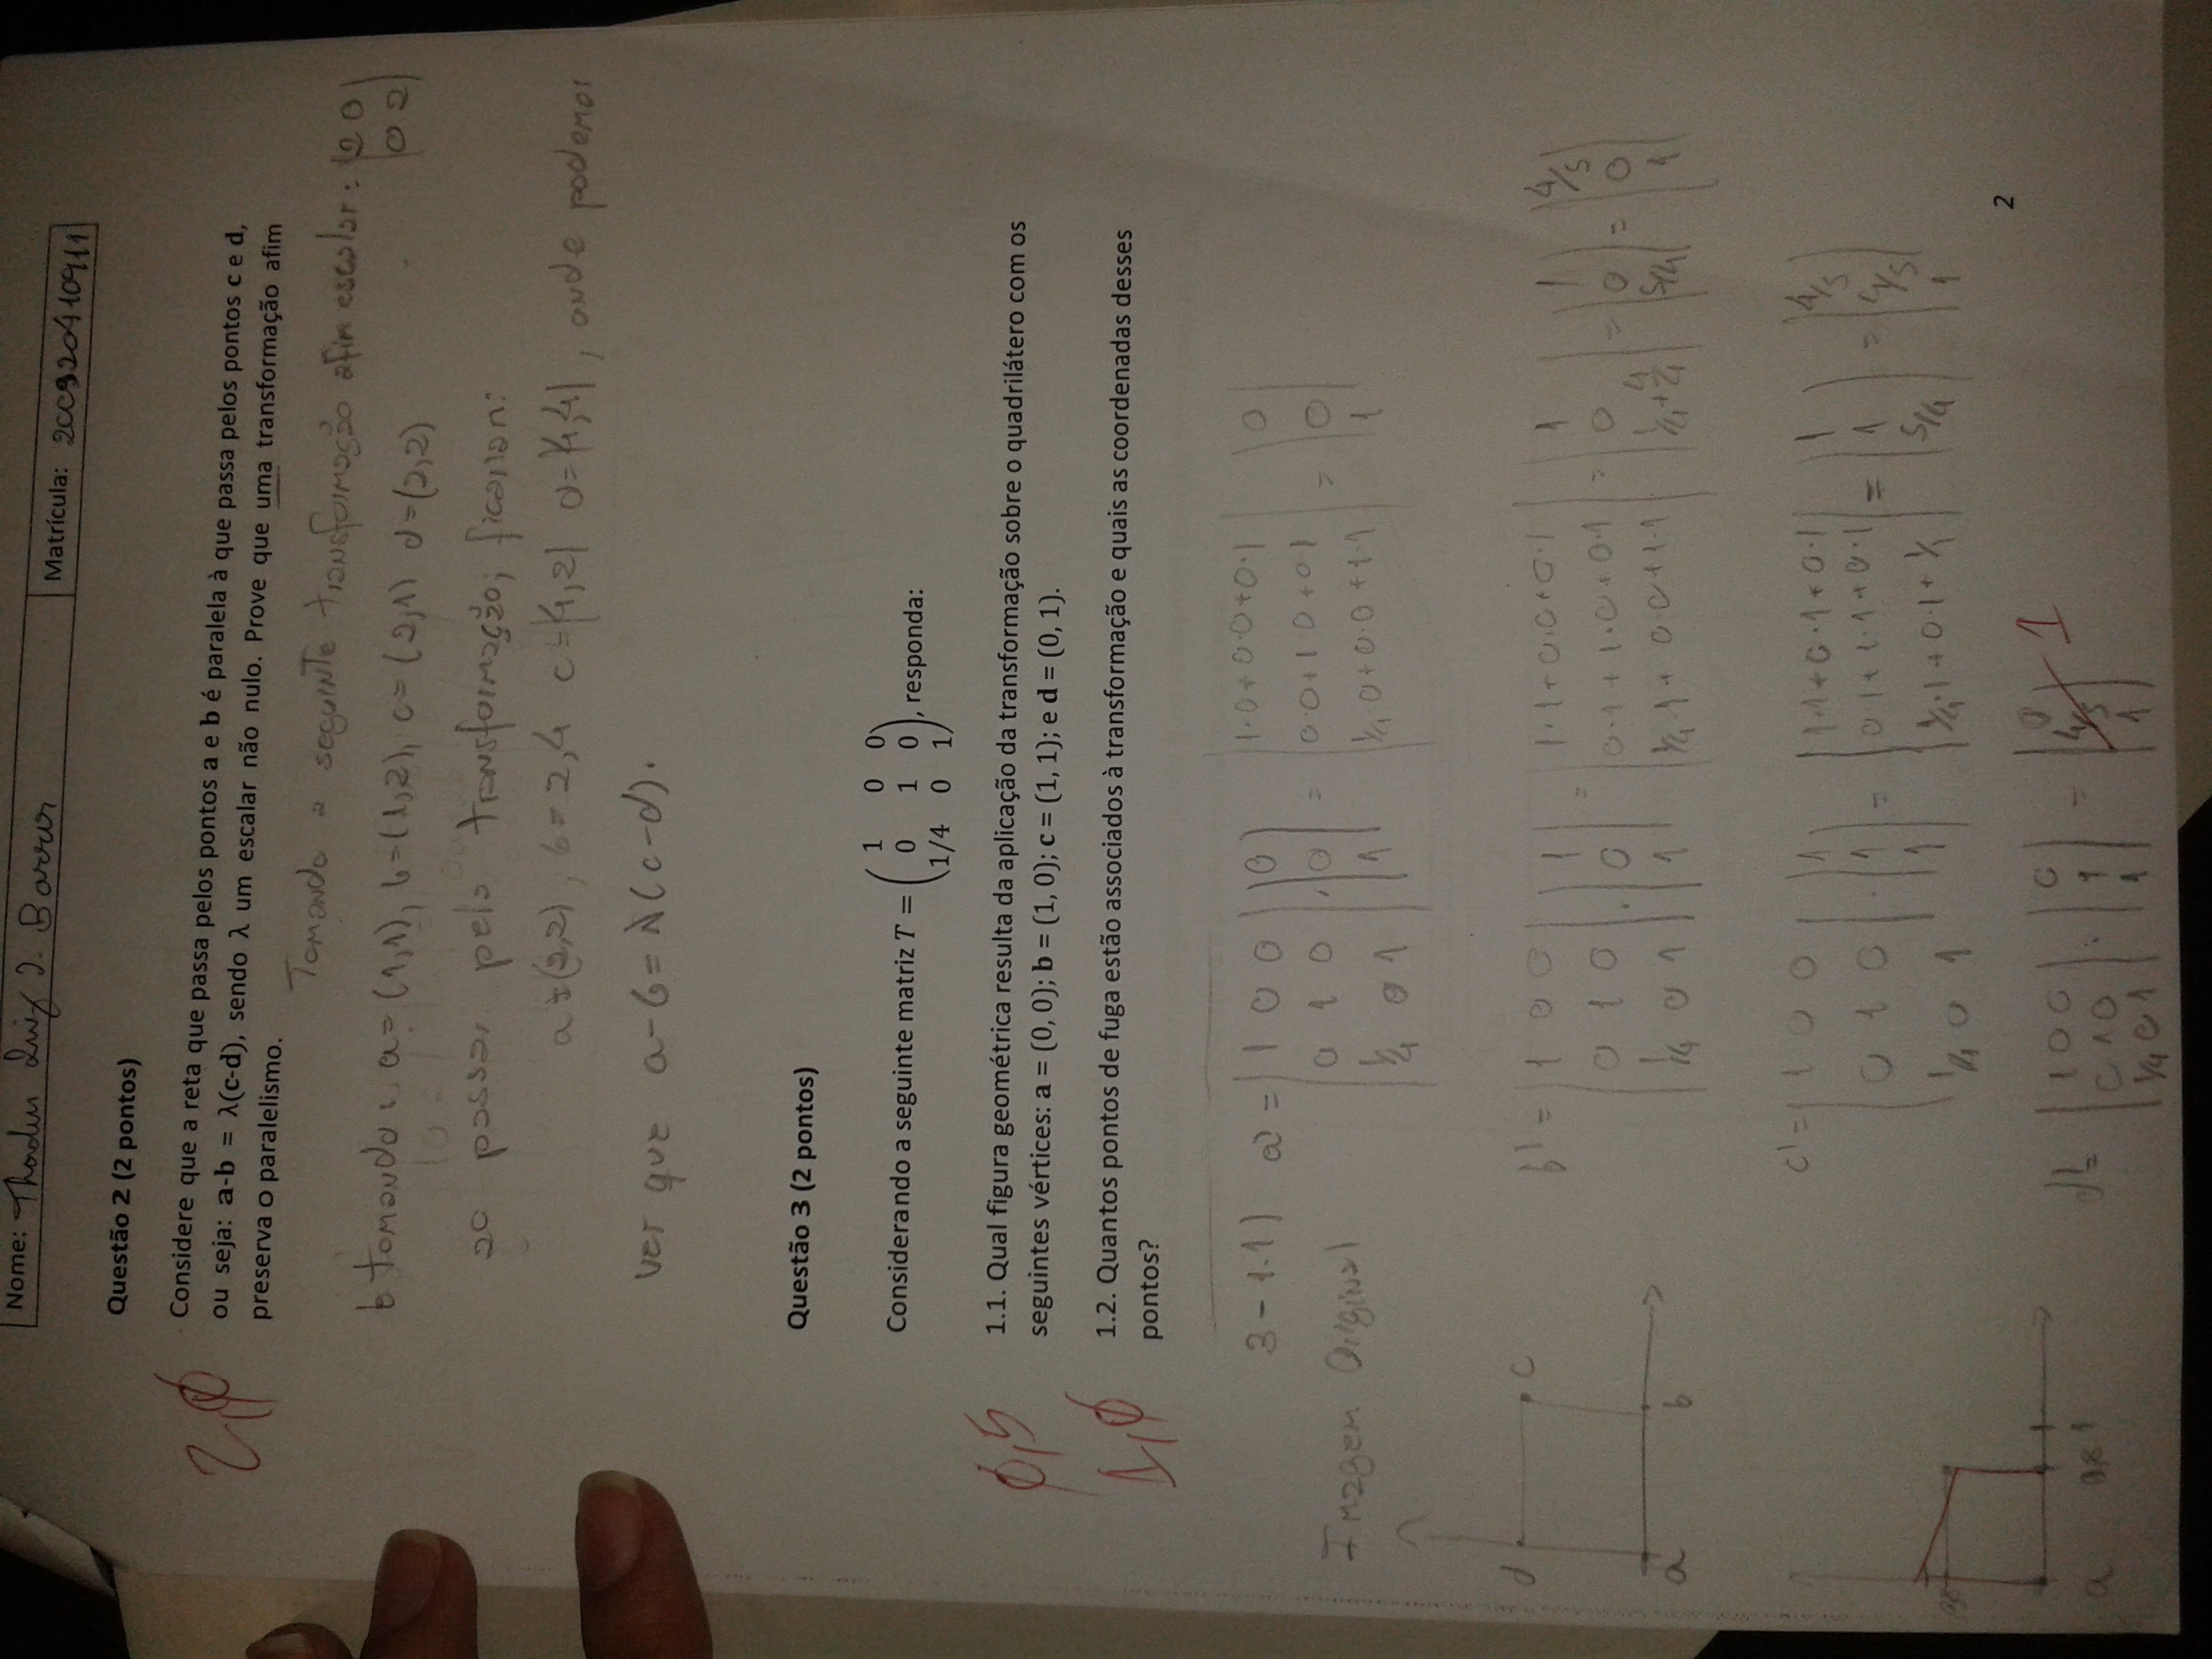 Nome: Luiz J.
Matrícula: 200920410911
Questão 2 (2 pontos)
2,0
Considere que a reta que passa pelos pontos a e b é paralela à que passa pelos pontos c e d,
ou seja: a-b = λ(c-d), sendo λ um escalar não nulo. Prove que uma transformação afim
preserva o paralelismo.
Tomando a seguinte transformação afim escalar: |2 0|
|0 2|
E tomando: a=(1,1), b=(1,2), c=(2,1) d=(2,2)
ao passar pela transformação, ficariam:
a=(2,2), b=2,4 c=|4,2| d=|4,4|, onde podemos
ver que a-b=λ(c-d).
Questão 3 (2 pontos)
Considerando a seguinte matriz T = ( 1 0 0
0 1 0
1/4 0 1 ), responda:
0,5
1.1. Qual figura geométrica resulta da aplicação da transformação sobre o quadrilátero com os
seguintes vértices: a = (0, 0); b = (1, 0); c = (1, 1); e d = (0, 1).
1,0
1.2. Quantos pontos de fuga estão associados à transformação e quais as coordenadas desses
pontos?
3-1.1) a' = |1 0 0| |0| |1.0+0.0+0.1| |0|
|0 1 0| . |0| = |0.0+1.0+0.1| = |0|
|1/4 0 1| |1| |1/4.0+0.0+1.1| |1|
Imagem Original
d c
a b
b' = |1 0 0| |1| = |1.1+0.0+0.1| |1| |1| |4/5|
|0 1 0| . |0| |0.1+1.0+0.1| = |0| = |0| = |0|
|1/4 0 1| |1| |1/4.1+0.0+1.1| |1/4+4/4| |5/4| |1|
c' = |1 0 0| |1| |1.1+0.1+0.1| |1| |4/5|
|0 1 0| . |1| = |0.1+1.1+0.1| = |1| = |4/5|
|1/4 0 1| |1| |1/4.1+0.1+1/1| |5/4| |1|
0,8
a 0,8 1
2
d' = |1 0 0| |0| |0| 1
|0 1 0| . |1| = |4/5|
|1/4 0 1| |1| |1|